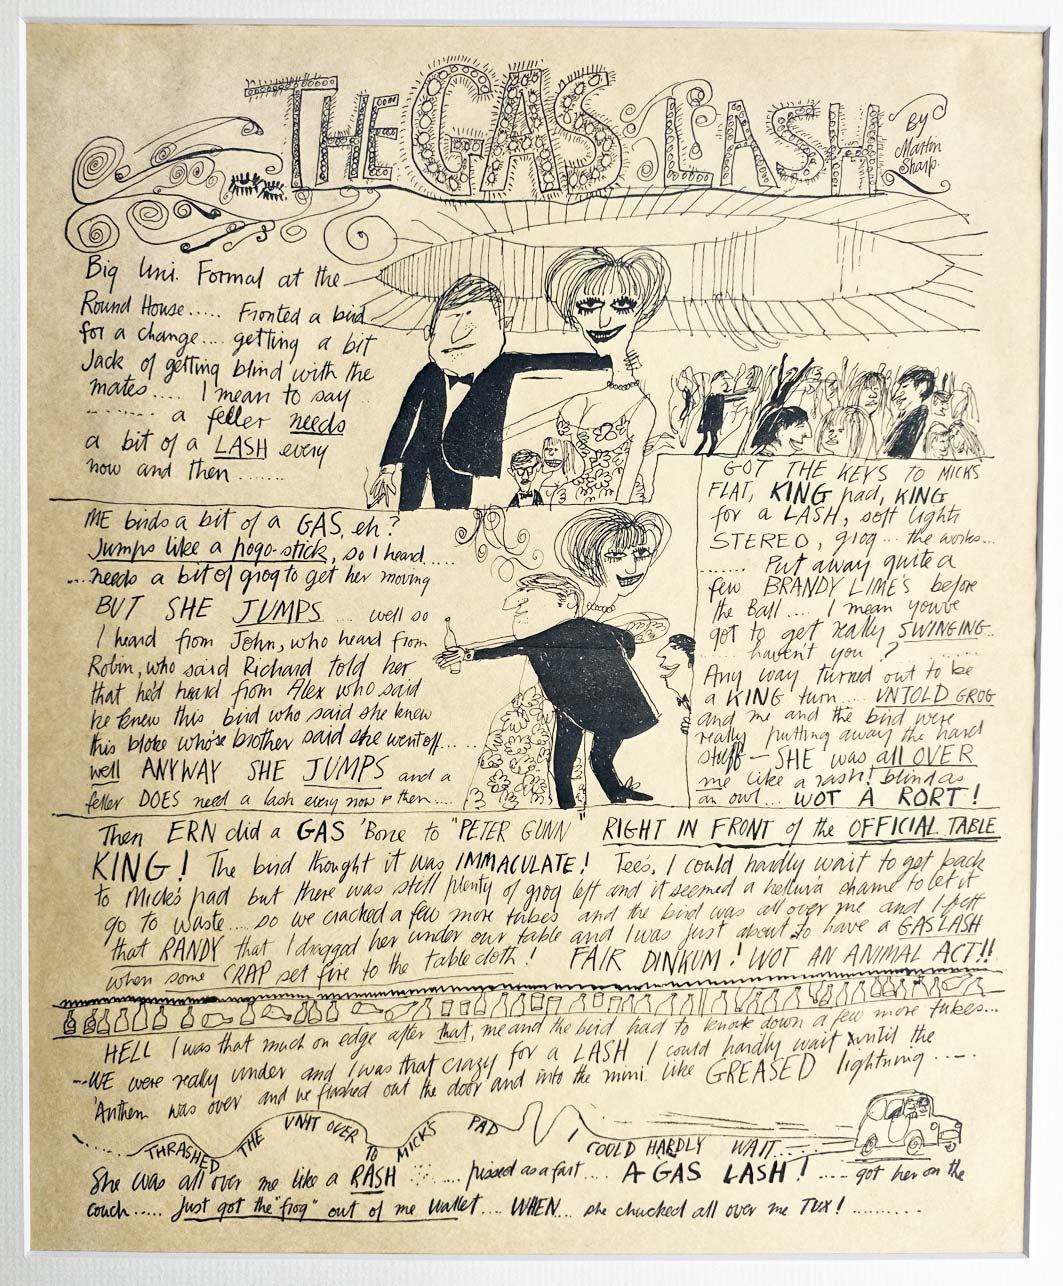 THE GAS LASH
BY
Martin
Sharp.
Big Uni. Formal at the
Round House..... Fronted a bird
for a change.... getting a bit
Jack of getting blind with the
mates..... I mean to say
........ a feller needs
a bit of a LASH every
now and then........
GOT THE KEYS TO MICKS
FLAT, KING pad, KING
for a LASH, soft lights
STEREO, grog... the works...
....... Put away quite a
few BRANDY LIME'S before
the Ball.... I mean you've
got to get really SWINGING..
haven't you?
Any way turned out to be
a KING turn.... UNTOLD GROG
and me and the bird were
really putting away the hard
stuff — SHE was all OVER
me like a rash! blind as
an owl... WOT A RORT!
ME birds a bit of a GAS, eh?
Jumps like a pogo-stick, so I heard....
....needs a bit of grog to get her moving
BUT SHE JUMPS.... well so
I heard from John, who heard from
Robin, who said Richard told her
that he'd heard from Alex who said
he knew this bird who said she knew
this bloke who's brother said she went off......
well ANYWAY SHE JUMPS and a
feller DOES need a lash every now & then....
Then ERN did a GAS 'Bone to "PETER GUNN" RIGHT IN FRONT of the OFFICIAL TABLE
KING! The bird thought it was IMMACULATE! Tee's, I could hardly wait to get back
to Mick's pad but there was still plenty of grog left and it seemed a helluva shame to let it
go to waste.... so we cracked a few more tubes and the bird was all over me and I felt
that RANDY that I dragged her under our table and I was just about to have a GAS LASH
when some CRAP set fire to the tablecloth! FAIR DINKUM! WOT AN ANIMAL ACT!!
HELL I was that much on edge after that, me and the bird had to knock down a few more tubes...
--WE were really under and I was that crazy for a LASH I could hardly wait until the
'Anthem was over and we flashed out the door and into the mini like GREASED lightning.....
THRASHED THE UNIT OVER TO MICK'S PAD I COULD HARDLY WAIT....
She was all over me like a RASH ....... pissed as a fart.... A GAS LASH! ..... got her on the
couch..... Just got the "frog" out of me wallet.... WHEN... she chucked all over me TUX! ..........